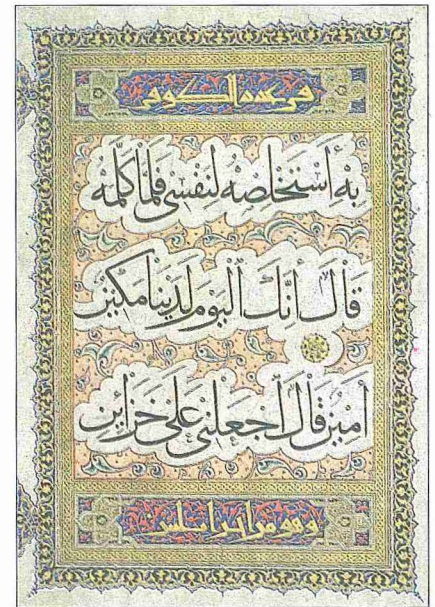 بِهِ أَسْتَخْلِصْهُ لِنَفْسِي فَلَمَّا كَلَّمَهُ
قَالَ إِنَّكَ الْيَوْمَ لَدَيْنَا مَكِينٌ
أَمِينٌ قَالَ اجْعَلْنِي عَلَى خَزَائِنِ